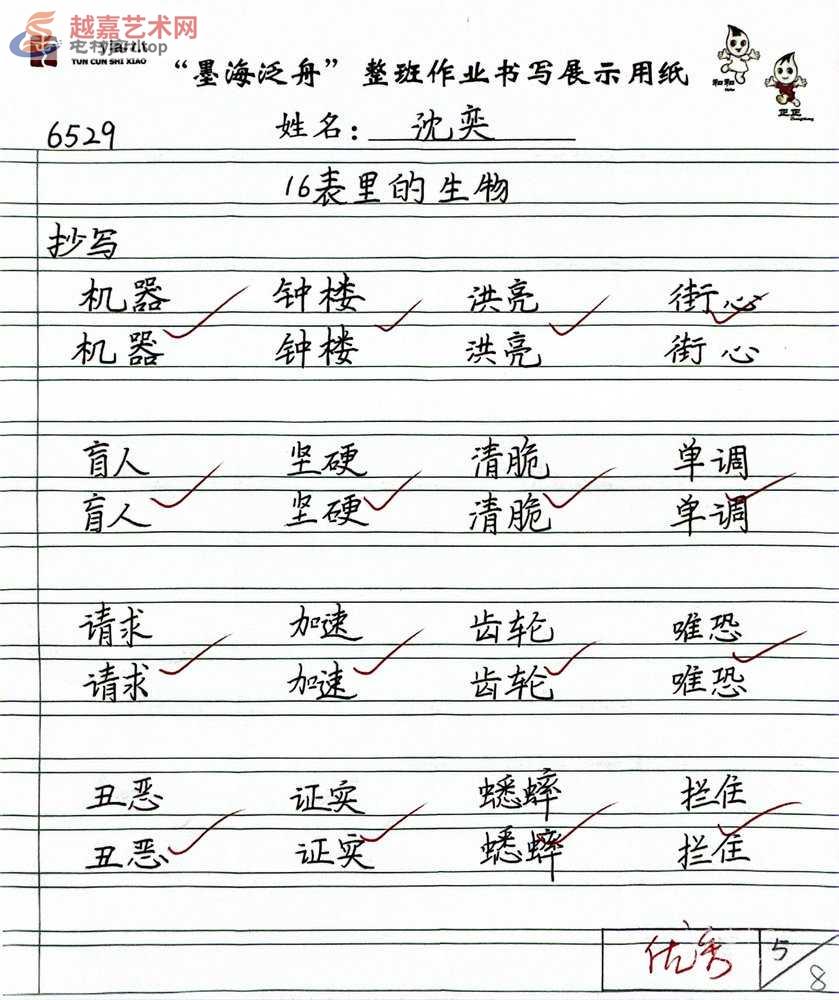 越嘉艺术网
yjart.top
YUN CUN SHI XIAO
“墨海泛舟”整班作业书写展示用纸
和和
正正
6529 姓名：沈奕
16表里的生物
抄写
机器 钟楼 洪亮 街心
机器 钟楼 洪亮 街心
盲人 坚硬 清脆 单调
盲人 坚硬 清脆 单调
请求 加速 齿轮 唯恐
请求 加速 齿轮 唯恐
丑恶 证实 蟋蟀 拦住
丑恶 证实 蟋蟀 拦住
优秀 5/8